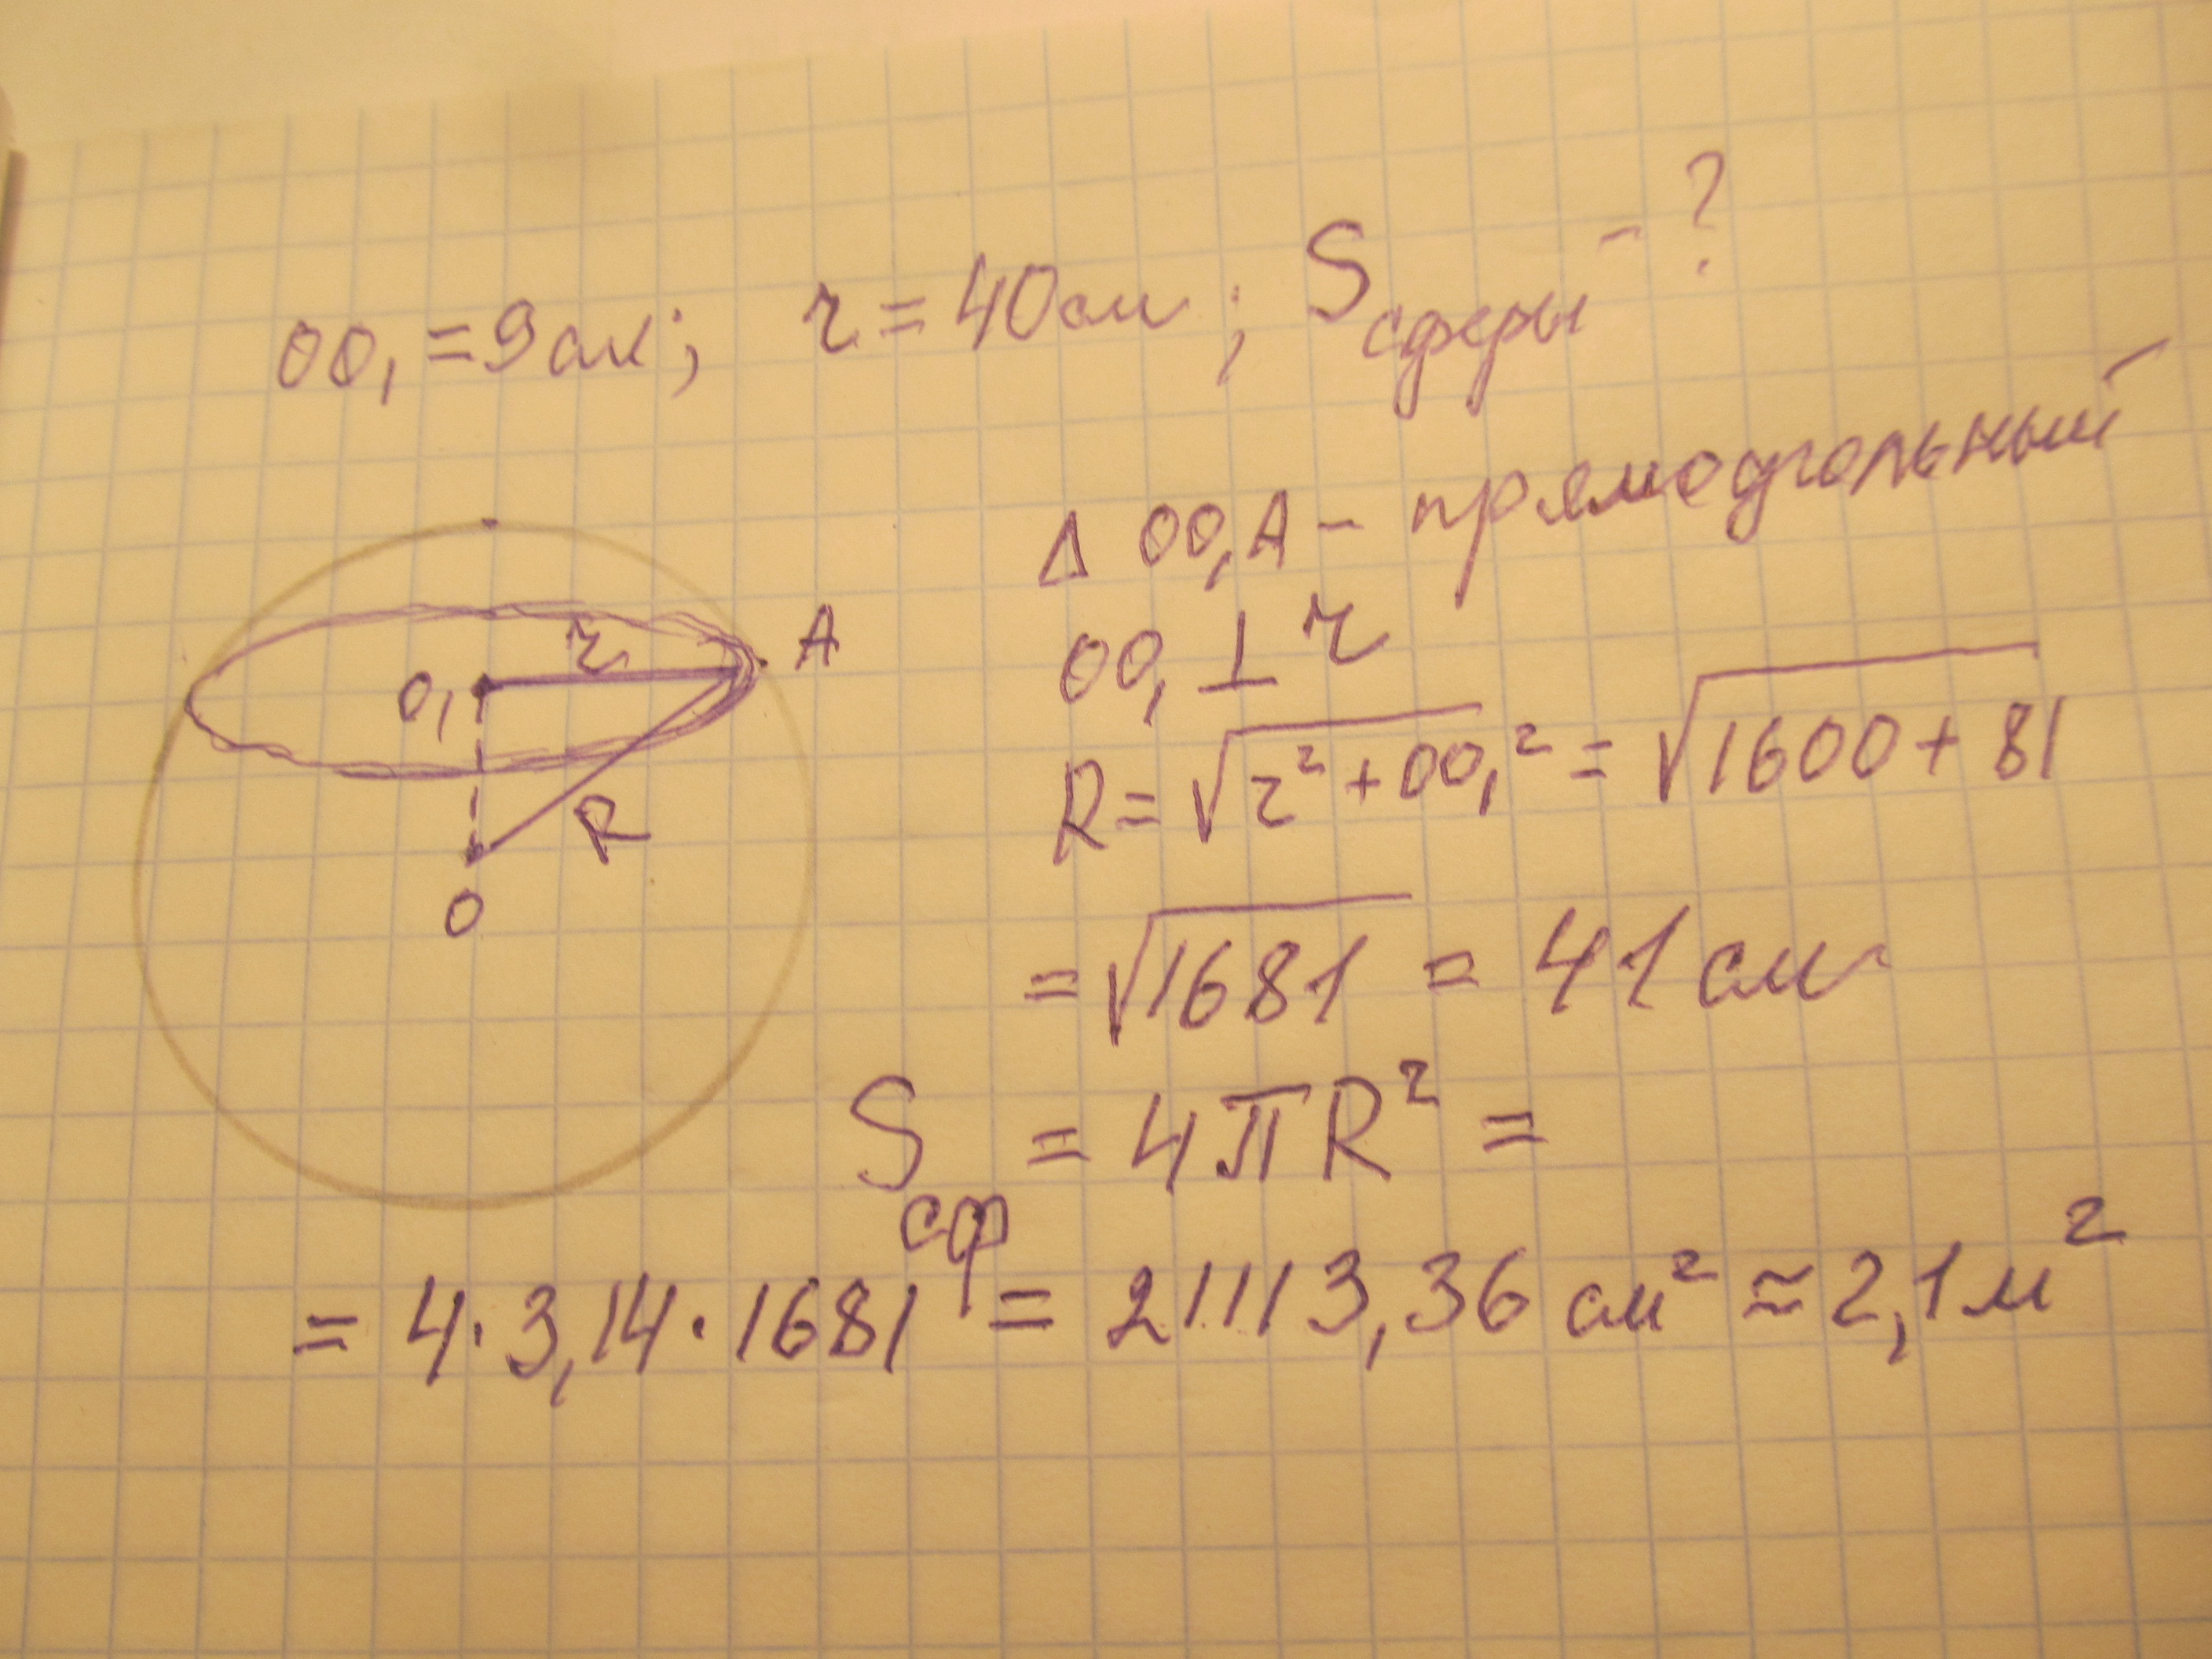 OO₁ = 9 см; r = 40 см; Sсферы - ?
Δ OO₁A - прямоугольный
OO₁ ⊥ r
R = √(r² + OO₁²) = √(1600 + 81)
= √1681 = 41 см
Sсф = 4πR² =
= 4·3,14·1681 = 21113,36 см² ≈ 2,1 м²
r
A
O₁
R
O